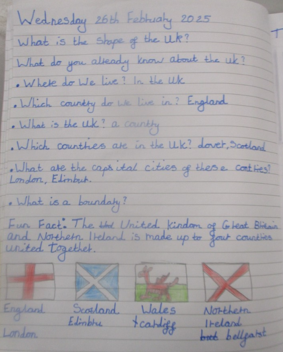 Wednesday 26th February 2025
What is the shape of the UK?
What do you already know about the uk?
• Where do we live? In the UK
• Which country do we live in? England
• What is the UK? a country
• Which countries are in the UK? dover, Scotland
• What are the capsital cities of these
London, Edinbut.
• What is a boundary?
Fun Fact: The United kindom of Great Britain
and Northern Ireland is made up to four counties
united Together.
England Scotland Wales Northern
Edinbhu cardiff Ireland
London bellfast